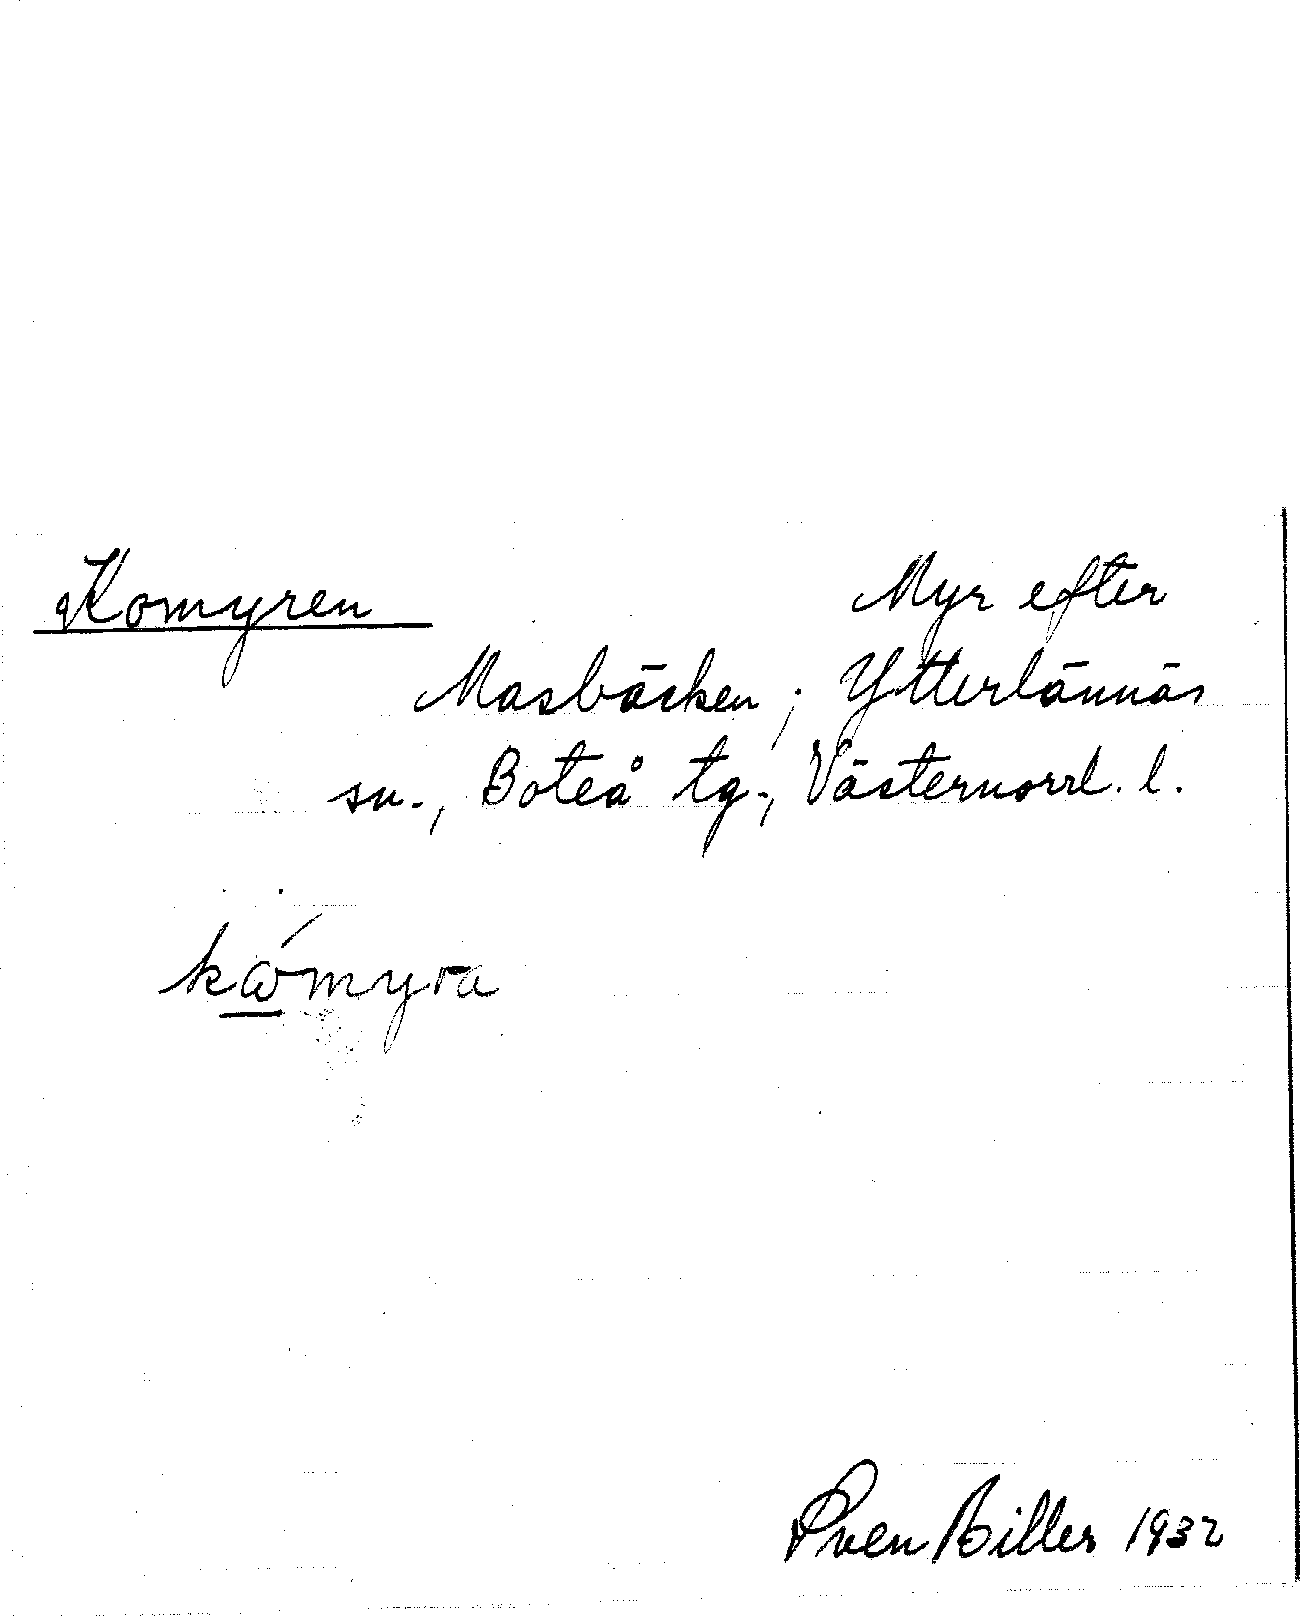 Komyren Myr efter
Masbäcken; Ytterlännäs
sn., Boteå tg., Västernorrl. l.
kɷ́myra
Sven Biller 1932